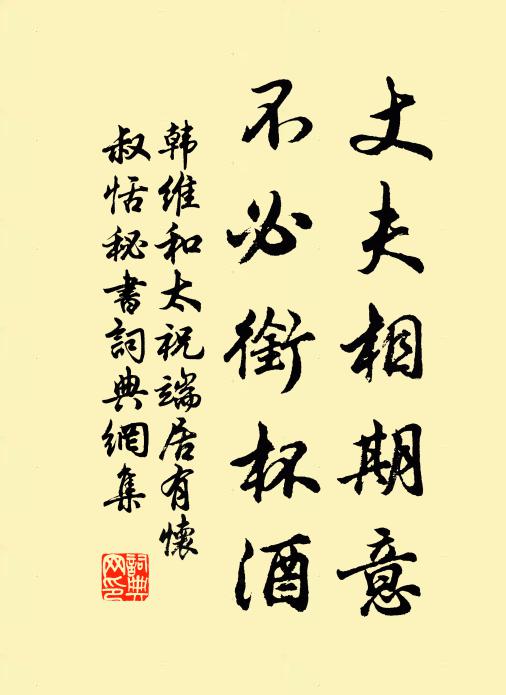 丈夫相期意
不必銜杯酒
韩維和太祝端居有懷
叔恬秘書詞典網集
詞典网印